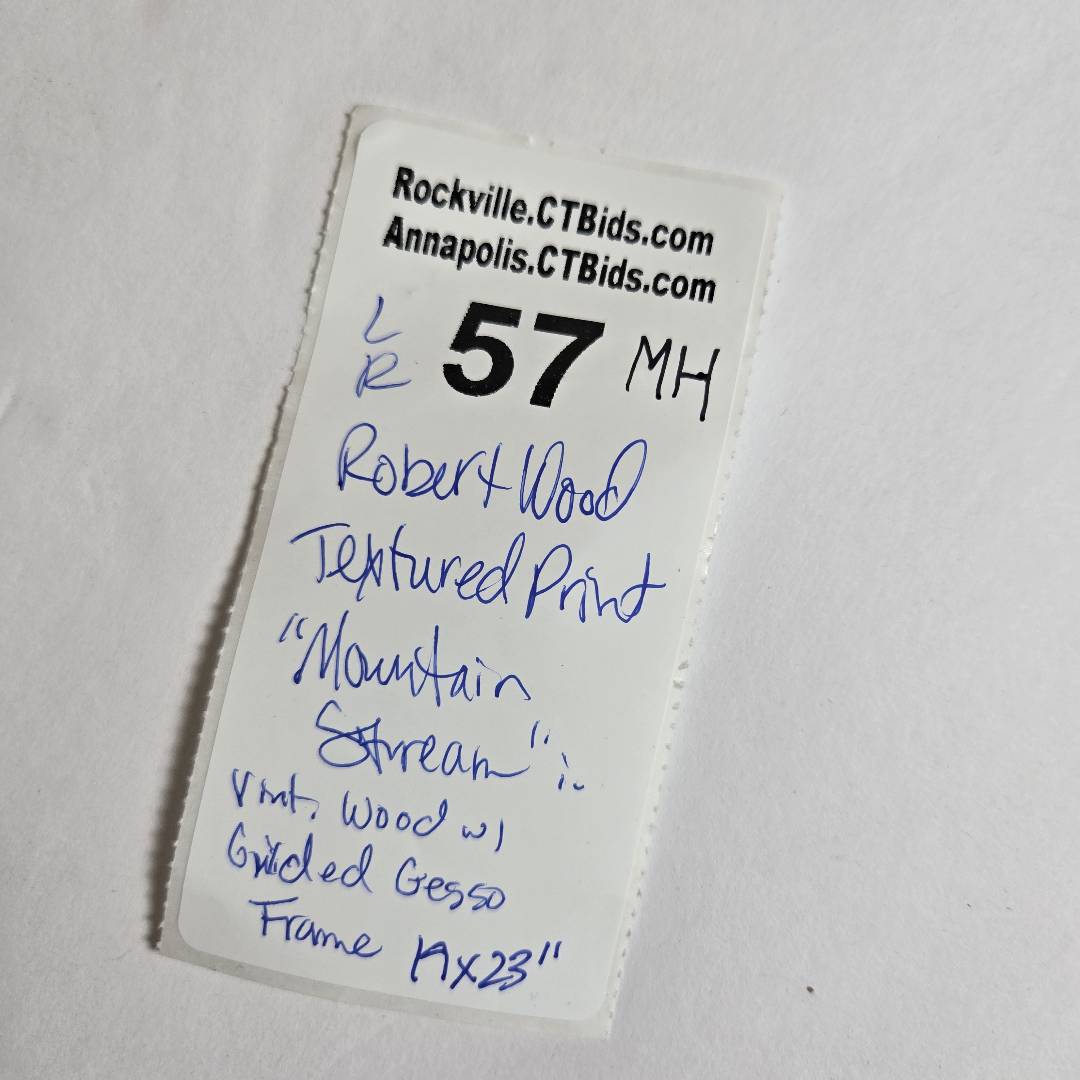 Rockville.CTBids.com
Annapolis.CTBids.com
L R 57 MH
Robert Wood
Textured Print
"Mountain
Stream" i
Vint. Wood w/
Guided Gesso
Frame 19x23"